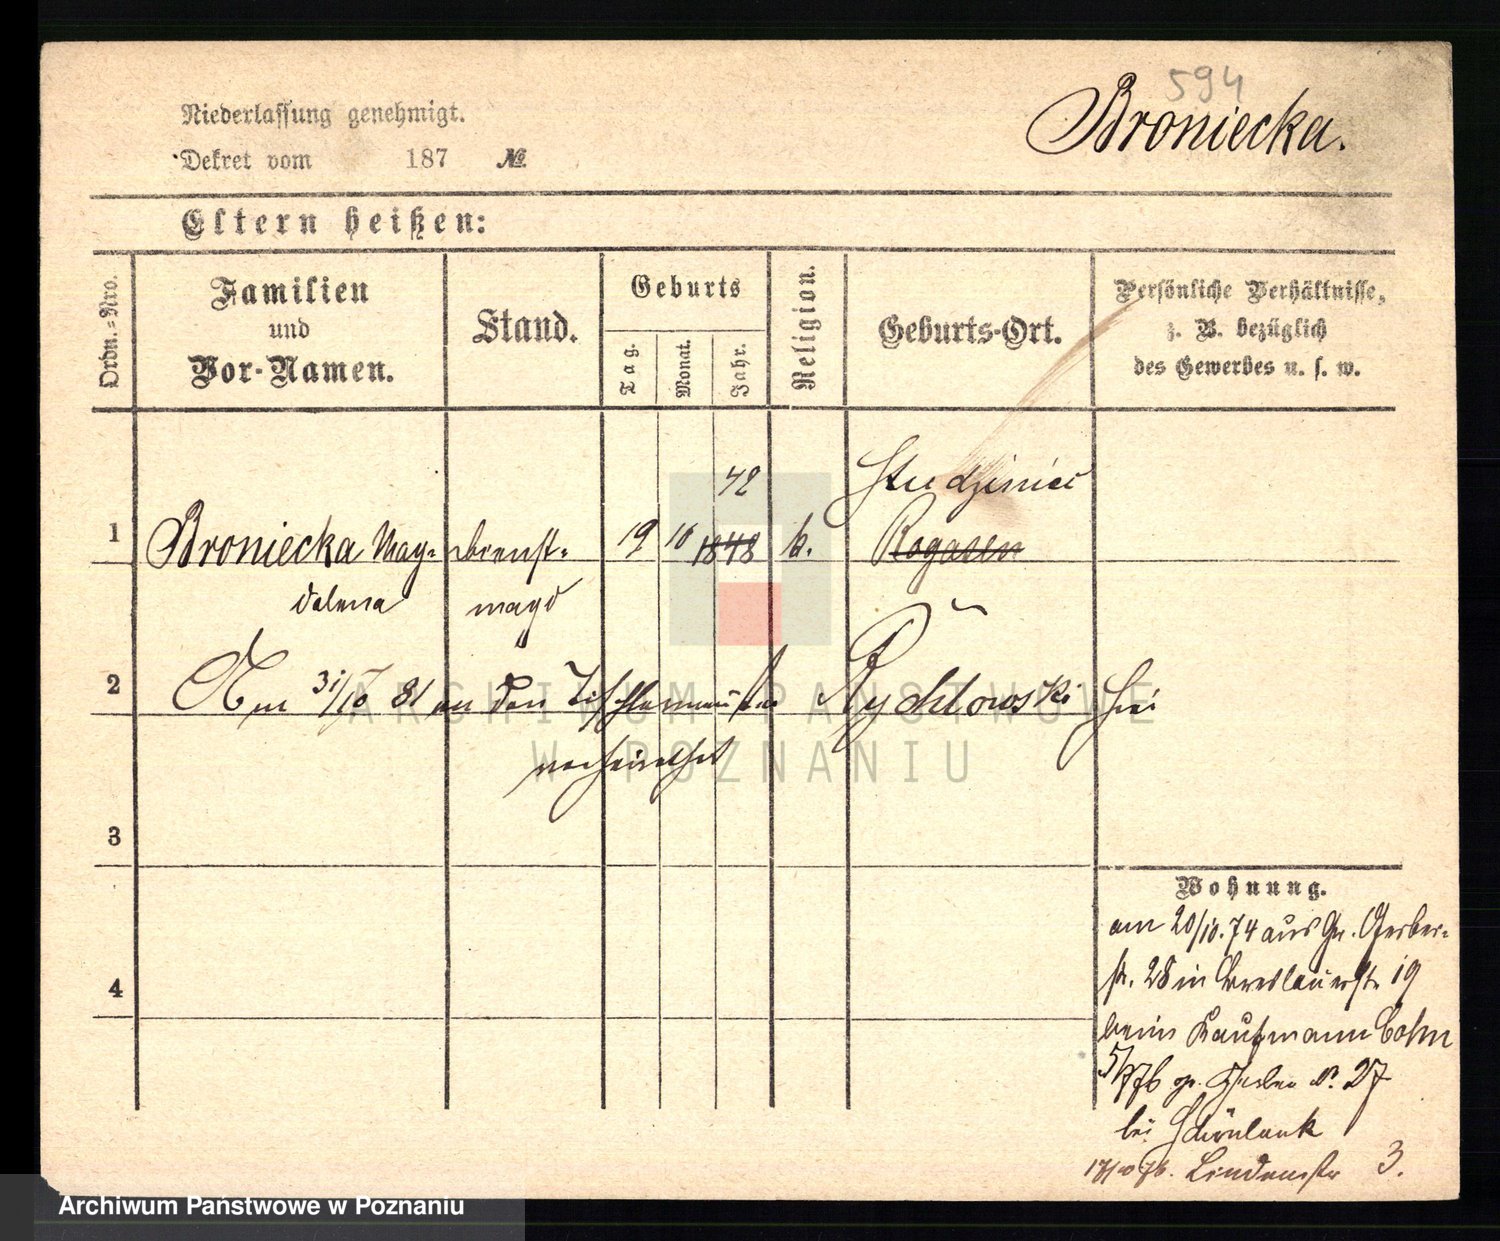 594
Broniecka.
Niederlassung genehmigt.
Dekret vom 187 №
Eltern heißen:
Ordn.=Nro.
Familien
und
Vor-Namen.
Stand.
Geburts
Tag.
Monat.
Jahr.
Religion.
Geburts-Ort.
Persönliche Verhältnisse,
z. B. bezüglich
des Gewerbes u. s. w.
42 Studziniec
1 Broniecka Mag= Dienst= 19 10 1848 k. Rogasen
dalena magd
2 Am 31/10 81 an den Tischlermeister Rychlowski hier
verheirathet
3
4
Wohnung.
am 20/10.74 aus Gr. Gerber=
str. 28 in Breslauerstr. 19
beim Kaufmann Cohn
76 gr. Gerber N. 27
bei Schönlank
76. Lindenstr 3.
ARCHIWUM PAŃSTWOWE
W POZNANIU
Archiwum Państwowe w Poznaniu